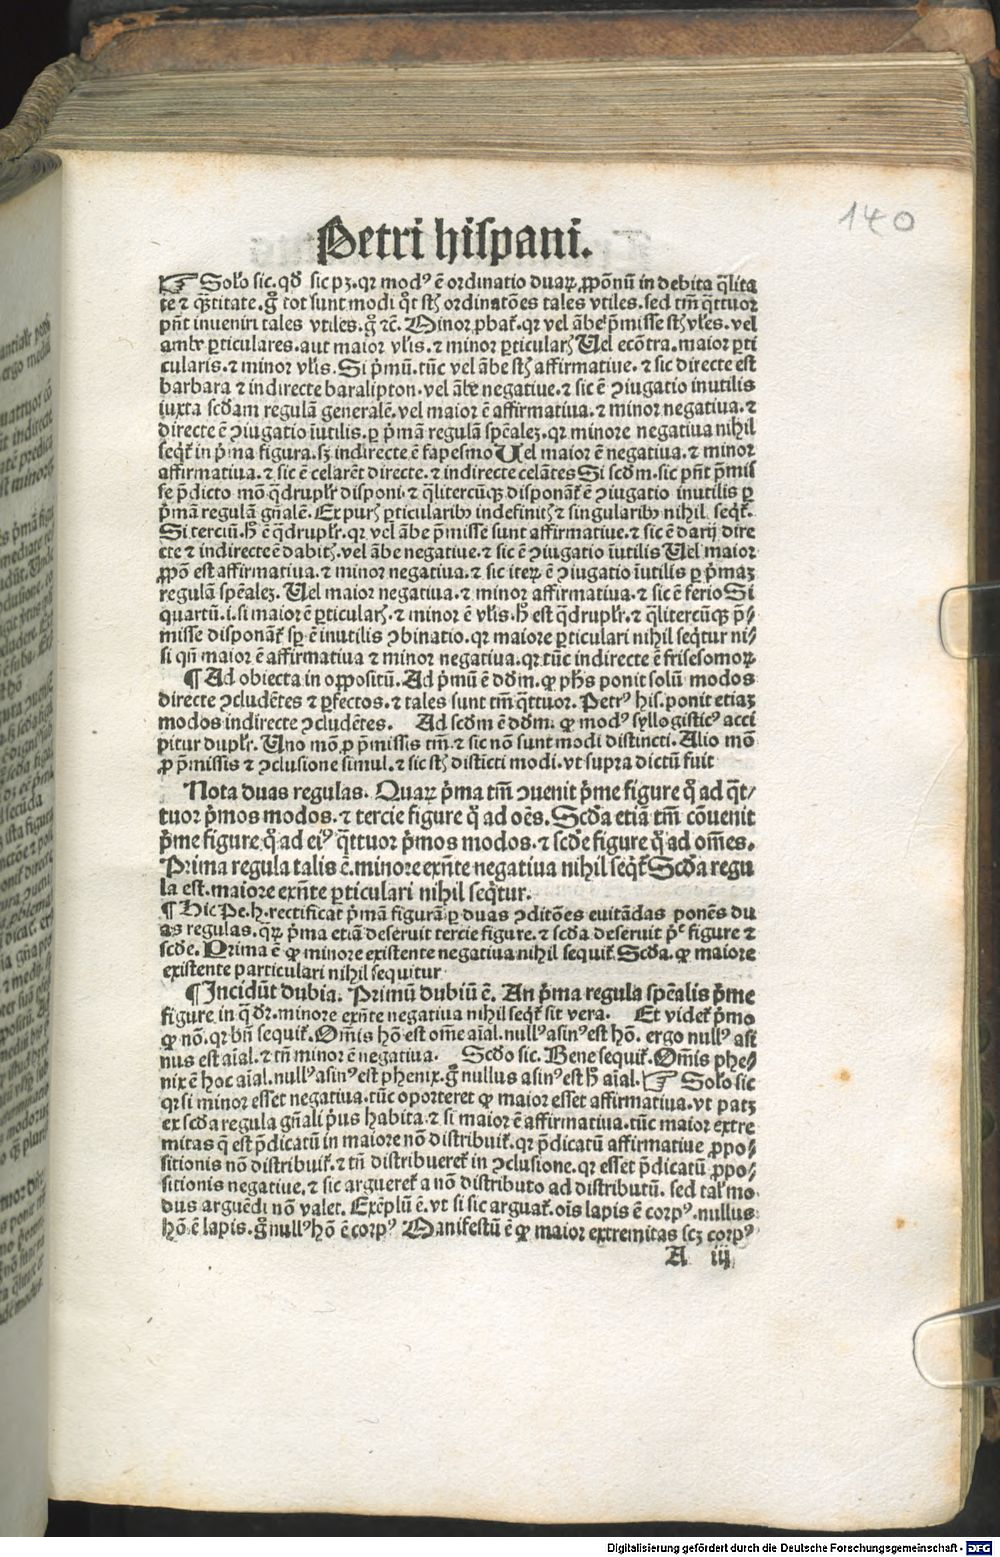 140
Petri hispani.
☞ Solo sic. qð sic pꝫ. qꝛ modꝰ ē ordinatio duaꝝ ꝓpōnū in debita q̄lita
te ⁊ q̄titate. gͦ tot sunt modi qͦt st̄ ordinatōes tales vtiles. sed tm̄ q̄ttuor
pn̄t inueniri tales vtiles. gͦ ⁊c̄. Minor ꝓbat̄. qꝛ vel ābe p̄misse st̄ vl̄es. vel
ambe ꝑticulares. aut maior vl̄is. ⁊ minor ꝑticularꝭ Uel ecōtra. maior ꝑti
cularis. ⁊ minor vl̄is. Si pͥmū. tūc vel ābe st̄ affirmatiue. ⁊ sic directe est
barbara ⁊ indirecte baralipton. vel ābe negatiue. ⁊ sic ē ꝯiugatio inutilis
iuxta scd̄am regulā generalē. vel maior ē affirmatiua. ⁊ minor negatiua. ⁊
directe ē ꝯiugatio īutilis. ꝑ pͥmā regulā spēalez. qꝛ minore negatiua nihil
seqͥt̄ in pͥma figura. sꝫ indirecte ē fapesmo Uel maior ē negatiua. ⁊ minor
affirmatiua. ⁊ sic ē celarēt directe. ⁊ indirecte celātes Si scd̄m. sic pn̄t p̄mis
se p̄dicto mō q̄druplr̄ disponi. ⁊ q̄litercūqꝫ disponāt̄ ē ꝯiugatio inutilis ꝑ
pͥmā regulā gn̄alē. Ex purꝭ ꝑticularibꝰ indefinitꝭ ⁊ singularibꝰ nihil seqͥt̄.
Si terciū. h̄ ē q̄druplr̄. qꝛ vel ābe p̄misse sunt affirmatiue. ⁊ sic ē darij dire
cte ⁊ indirecte ē dabitꝭ. vel ābe negatiue. ⁊ sic ē ꝯiugatio īutilis Uel maior
ꝓpō est affirmatiua. ⁊ minor negatiua. ⁊ sic iteꝝ ē ꝯiugatio īutilis ꝑ pͥmaꝫ
regulā spēalez. Uel maior negatiua. ⁊ minor affirmatiua. ⁊ sic ē ferio Si
quartū. i. si maior ē ꝑticularꝭ. ⁊ minor ē vl̄is. h̄ est q̄druplr̄. ⁊ q̄litercūqꝫ p̄⸗
misse disponāt̄ sꝑ ē inutilis ꝯbinatio. qꝛ maiore ꝑticulari nihil seqͥtur ni⸗
si qn̄ maior ē affirmatiua ⁊ minor negatiua. qꝛ tūc indirecte ē frisesomoꝝ
¶ Ad obiecta in oppositū. Ad pͥmū ē dd̄m. ꝙ ph̄s ponit solū modos
directe ꝯcludētes ⁊ ꝑfectos. ⁊ tales sunt tm̄ q̄ttuor. Petrꝰ his. ponit etiaꝫ
modos indirecte ꝯcludētes. Ad scd̄m ē dd̄m. ꝙ modꝰ syllogisticꝰ acci
pitur duplr̄. Uno mō. ꝓ p̄missis tm̄. ⁊ sic nō sunt modi distincti. Alio mō
ꝓ p̄missis ⁊ ꝯclusione simul. ⁊ sic st̄ disticti modi. vt supra dictū fuit
Nota duas regulas. Quaꝝ pͥma tm̄ ꝯuenit pͥme figure qͦ ad q̄t⸗
tuor pͥmos modos. ⁊ tercie figure qͦ ad oēs. Scd̄a etiā tm̄ cōuenit
pͥme figure qͦ ad eiꝰ q̄ttuor pͥmos modos. ⁊ scd̄e figure qͦ ad om̄es.
Prima regula talis ē. minore exn̄te negatiua nihil seqͥt̄ Scd̄a regu
la est. maiore exn̄te ꝑticulari nihil seqͥtur.
¶ Hic Pe. h. rectificat pͥmā figurā ꝑ duas ꝯditōes euitādas ponēs du
as regulas. qꝝ pͥma etiā deseruit tercie figure. ⁊ scd̄a deseruit pͥe figure ⁊
scd̄e. Prima ē ꝙ minore existente negatiua nihil sequit̄. Scd̄a. ꝙ maiore
existente particulari nihil sequitur
¶ Incidūt dubia. Primū dubiū ē. An pͥma regula spēalis pͥme
figure in q̄ dr̄. minore exn̄te negatiua nihil seqͥt̄ sit vera. Et videt̄ pͥmo
ꝙ nō. qꝛ bn̄ sequit̄. Om̄is hō est om̄e aīal. nullꝰ asinꝰ est hō. ergo nullꝰ asi
nus est aīal. ⁊ tn̄ minor ē negatiua. Scd̄o sic. Bene sequit̄. Om̄is phe⸗
nix ē hoc aīal. nullꝰ asinꝰ est phenix. gͦ nullus asinꝰ est h̄ aīal. ☞ Solo sic
qꝛ si minor esset negatiua. tūc oporteret ꝙ maior esset affirmatiua. vt patꝫ
ex scd̄a regula gn̄ali pͥus habita. ⁊ si maior ē affirmatiua. tūc maior extre
mitas q̄ est p̄dicatū in maiore nō distribuit̄. qꝛ p̄dicatū affirmatiue ꝓpo⸗
sitionis nō distribuit̄. ⁊ tn̄ distribueret̄ in ꝯclusione. qꝛ esset p̄dicatū ꝓpo⸗
sitionis negatiue. ⁊ sic argueret̄ a nō distributo ad distributū. sed tal̄ mo
dus arguēdi nō valet. Exēplū ē. vt si sic arguat̄. oīs lapis ē corpꝰ. nullus
hō ē lapis. gͦ nullꝰ hō ē corpꝰ Manifestū ē ꝙ maior extremitas scꝫ corpꝰ
A iij
Digitalisierung gefördert durch die Deutsche Forschungsgemeinschaft - DFG